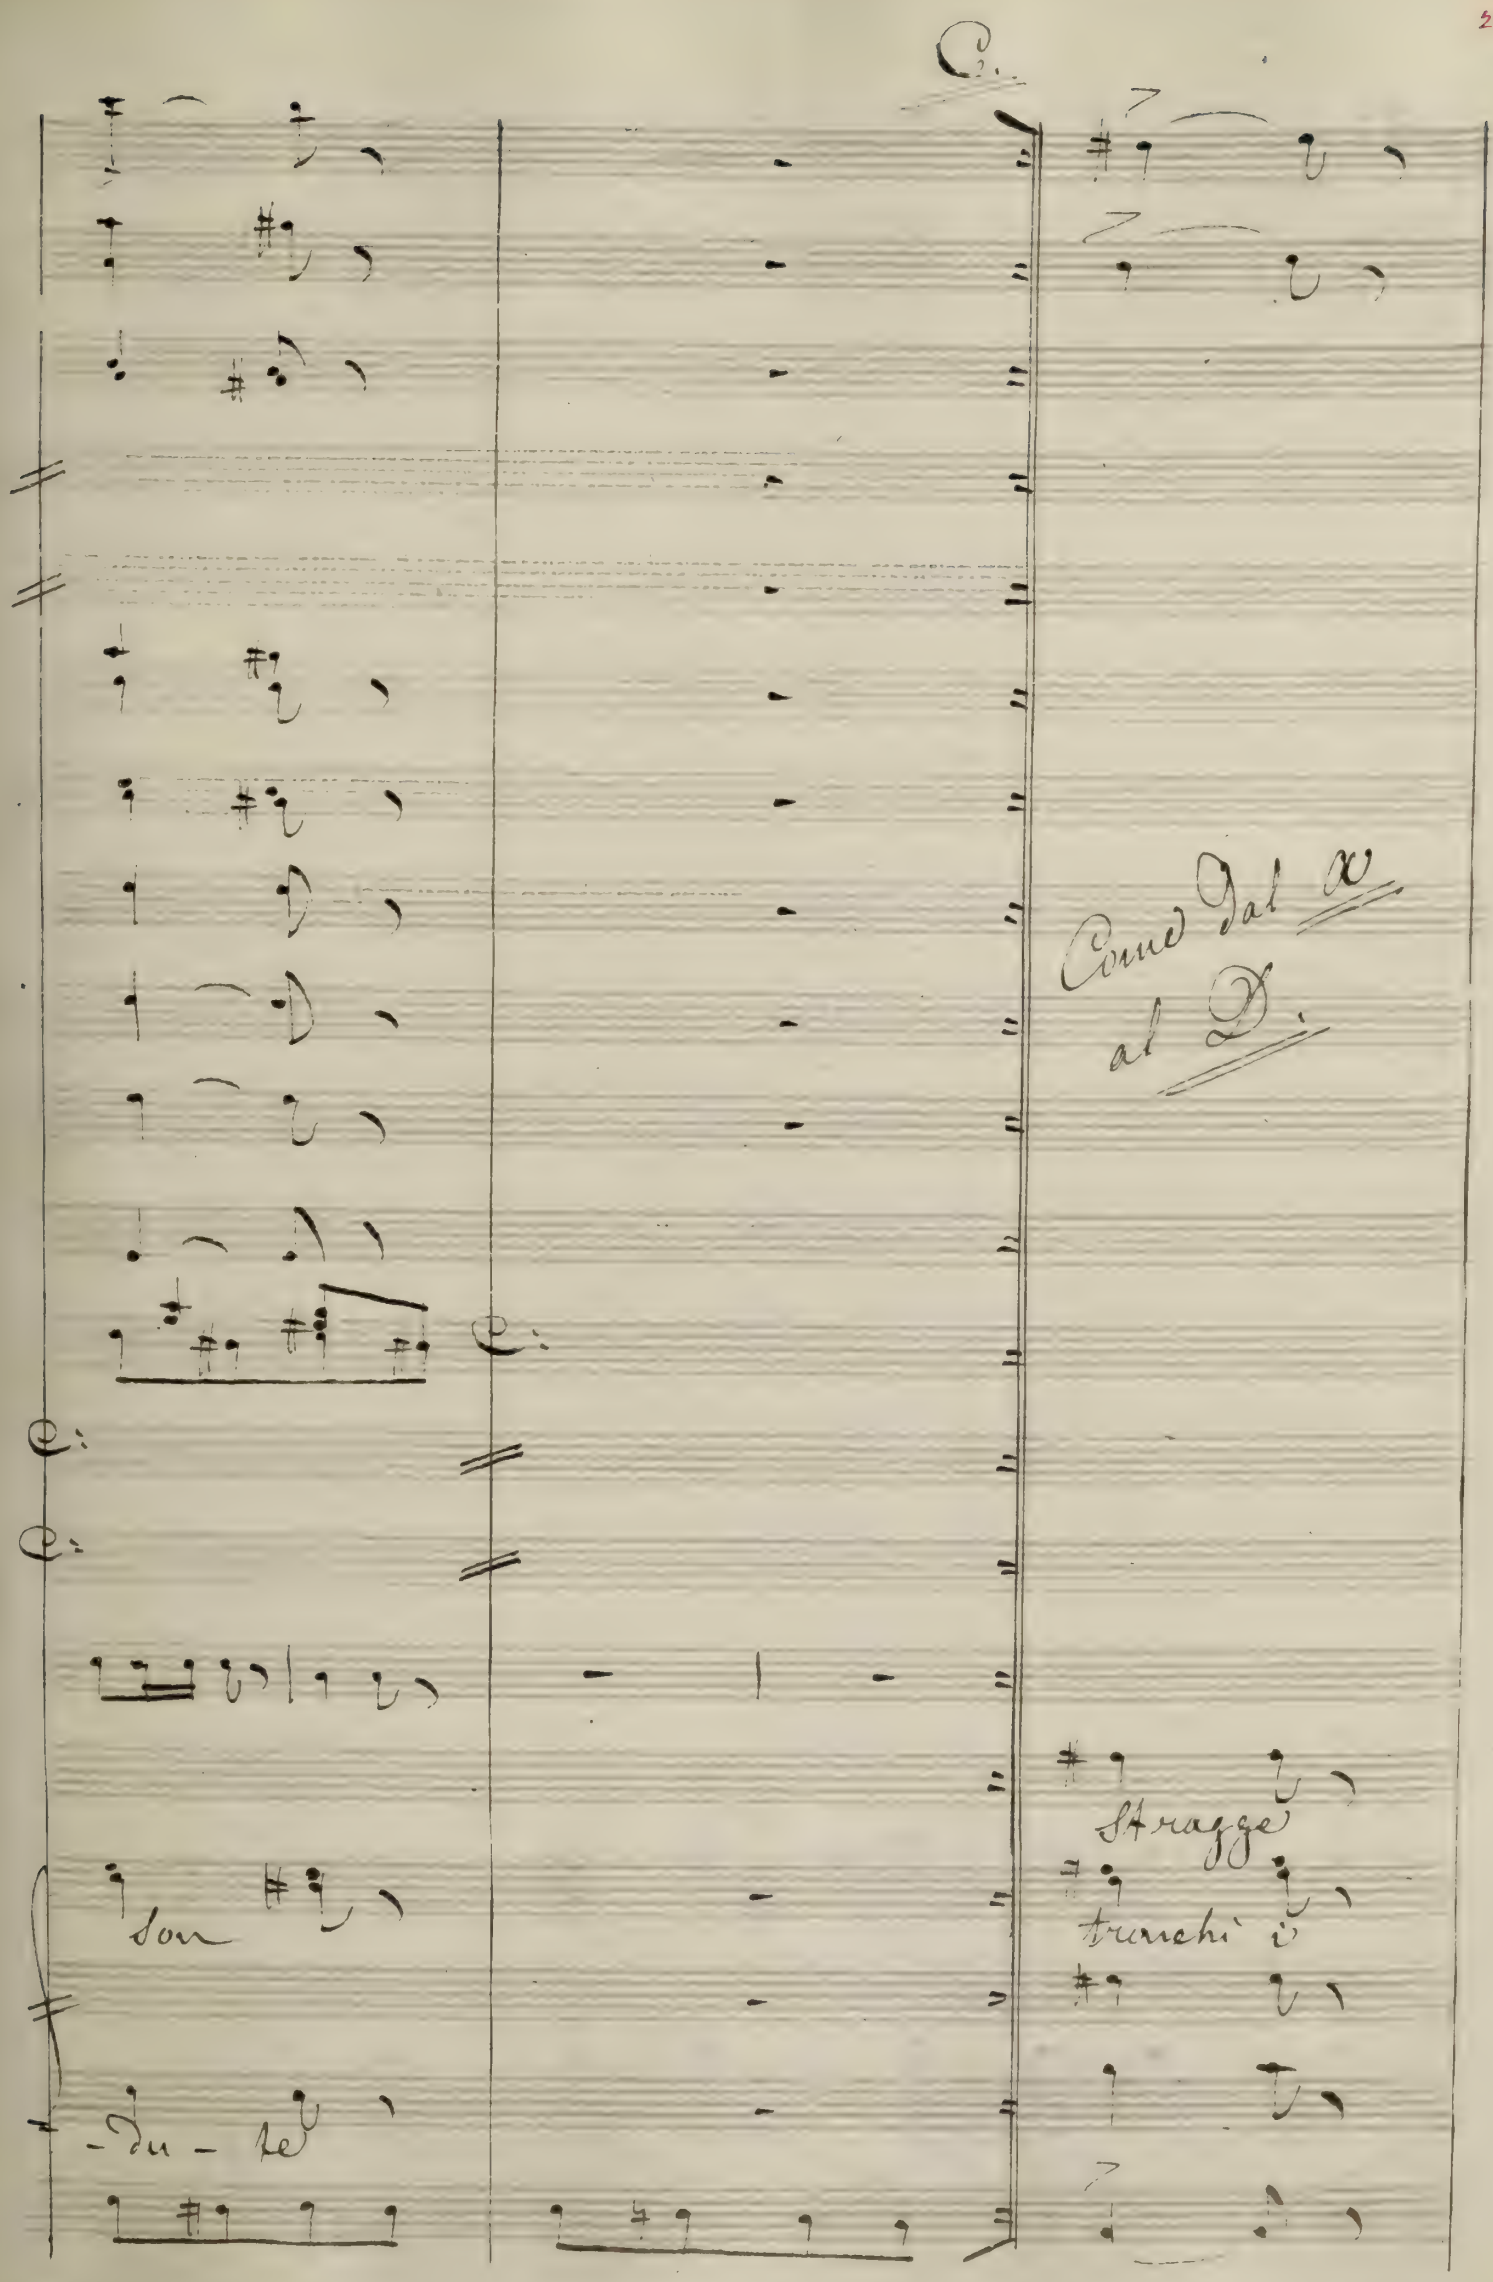 2
C.
Come Dal
al D.
Stragge
son
tronchi i
-du-te